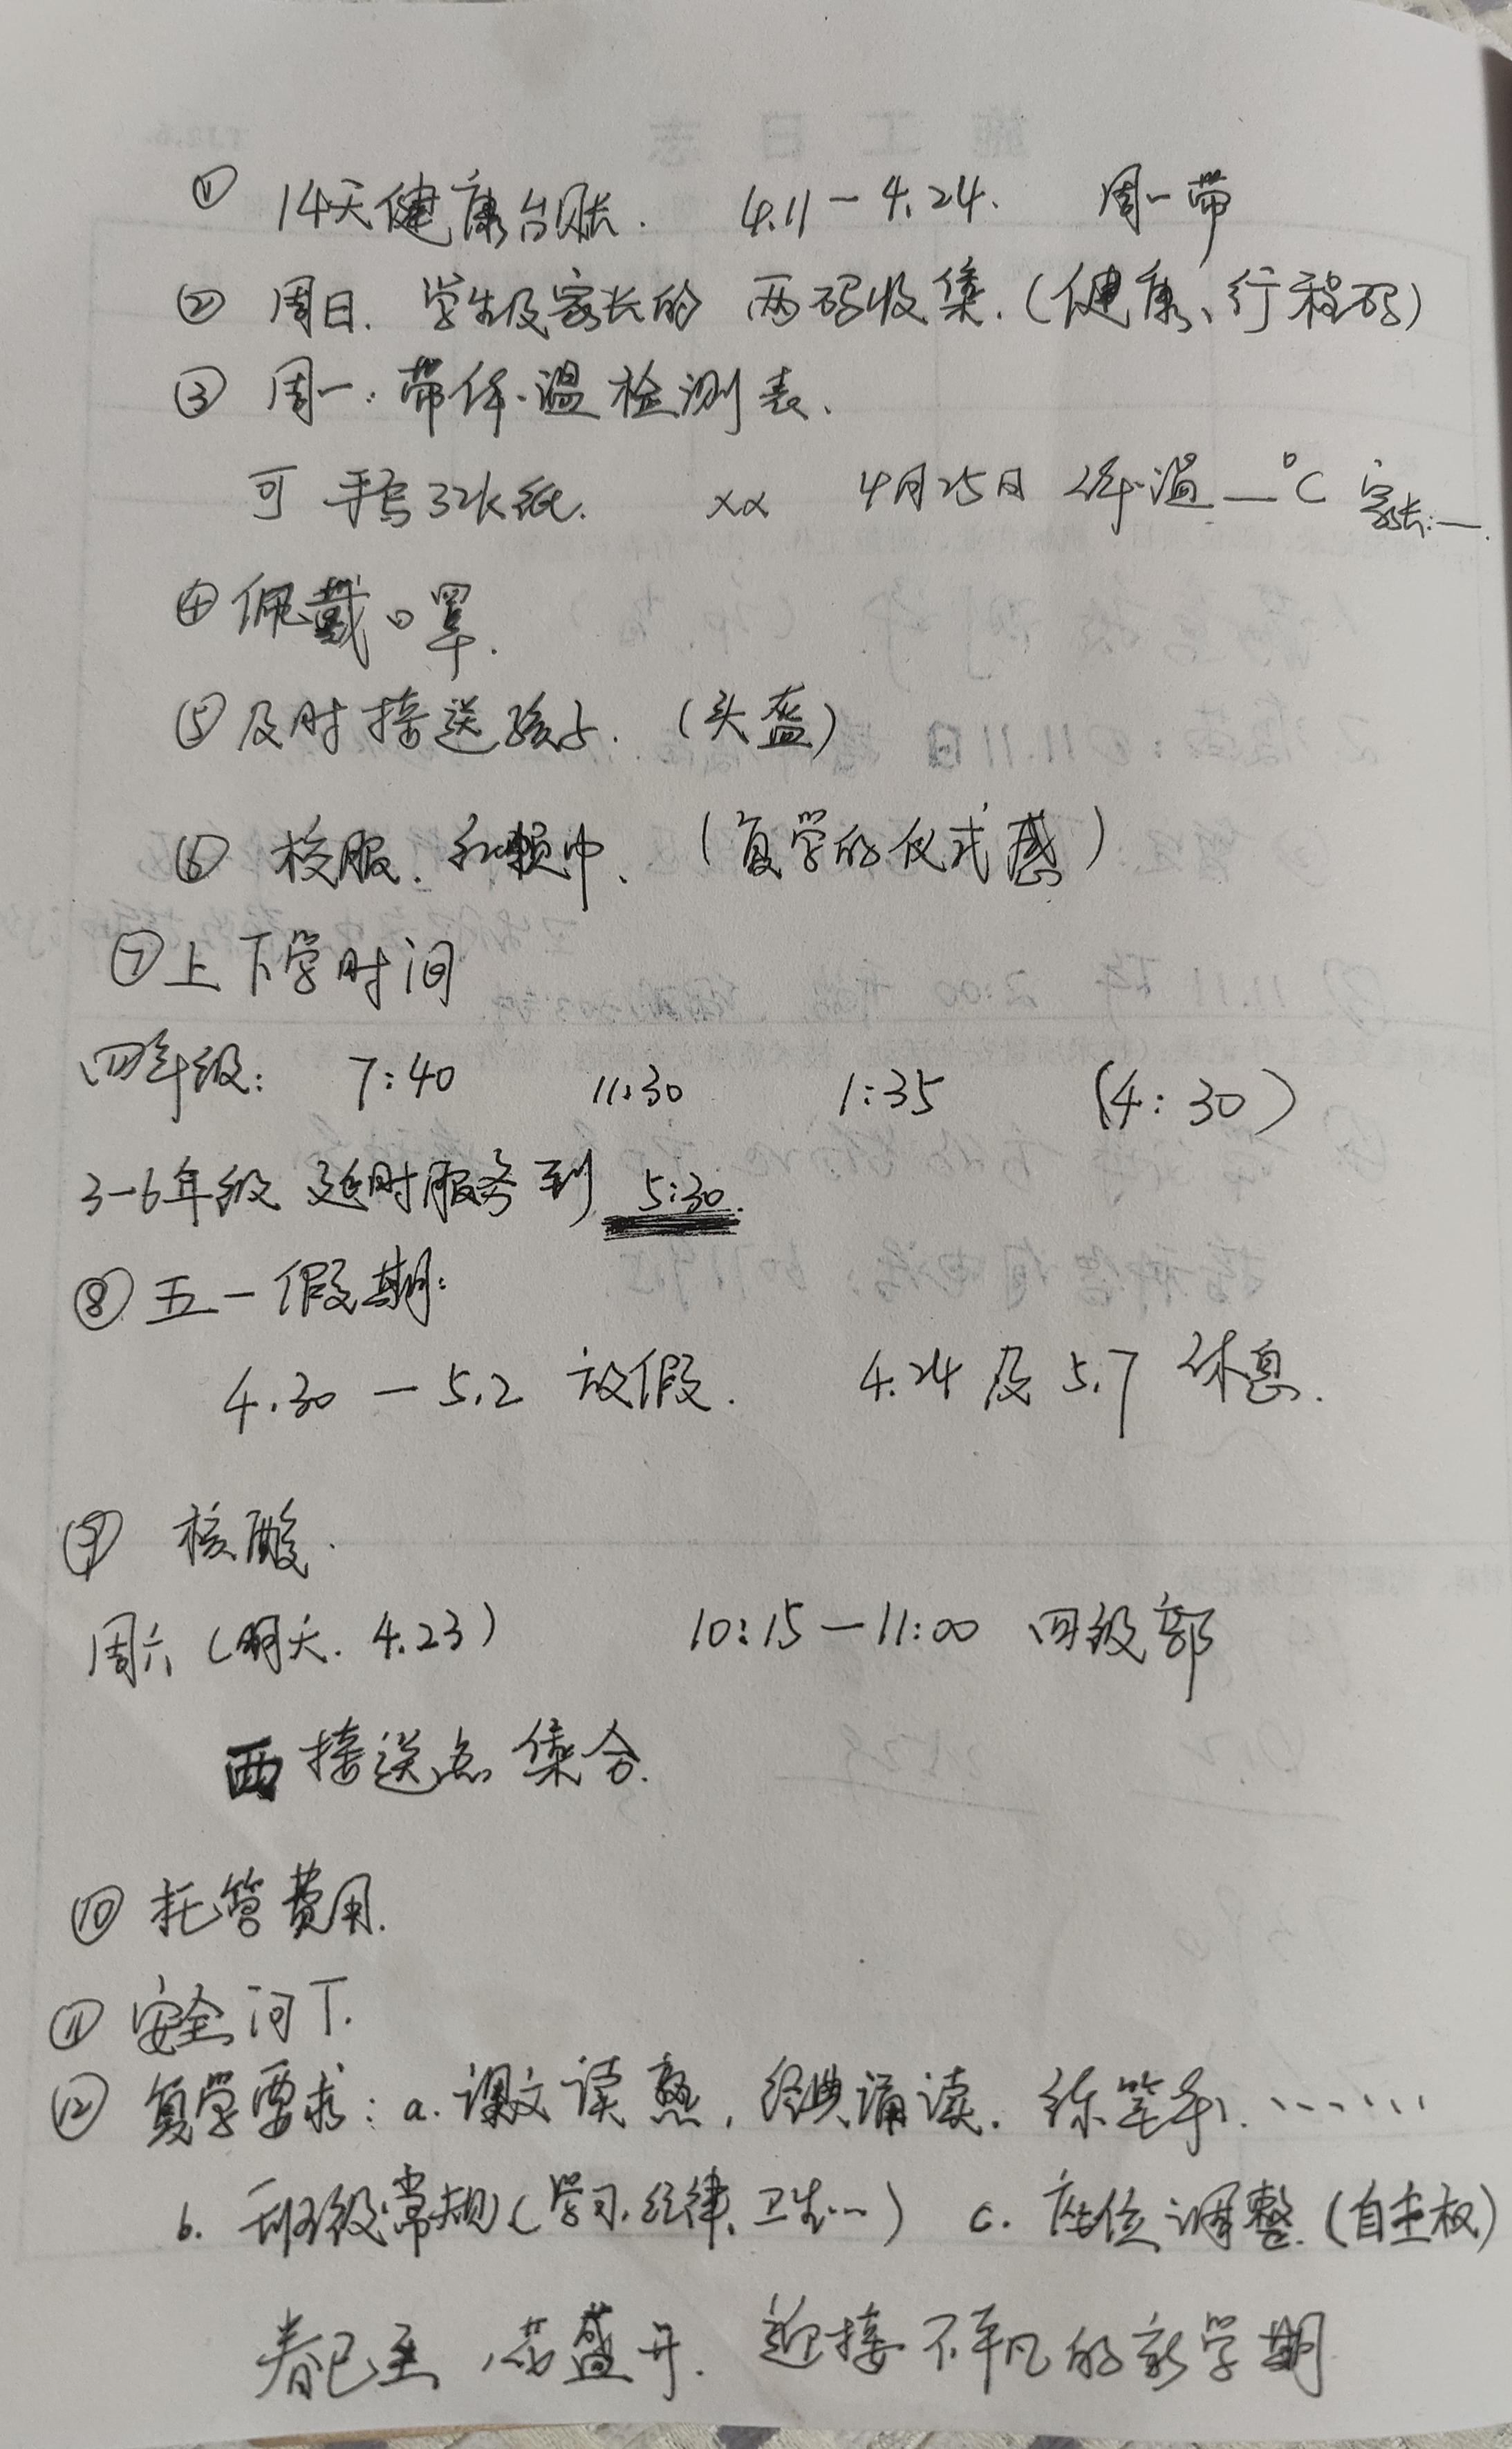 ① 14天健康台账. 4.11－4.24. 周一带
② 周日. 学生及家长的 两码收集.(健康、行程码)
③ 周一: 带体温检测表.
可 手写3张纸. xx 4月25日 体温__°C 家长:__.
④ 佩戴口罩.
⑤ 及时接送孩子. (头盔)
⑥ 校服. 红领巾. (复学的仪式感)
⑦ 上下学时间
四年级: 7:40 11:30 1:35 (4:30)
3-6年级 延时服务到 5:30.
⑧ 五一假期:
4.30 — 5.2 放假. 4.24 及 5.7 休息.
⑨ 核酸.
周六 (明天. 4.23) 10:15－11:00 四级部
西接送点集合.
⑩ 托管费用.
⑪ 安全问下.
⑫ 复学要求: a. 课文读熟, 经典诵读. 练笔本. ……
b. 班级常规 (学习. 纪律. 卫生…) c. 座位调整. (自主权)
春已至, 花盛开. 迎接不平凡的新学期
施工日志